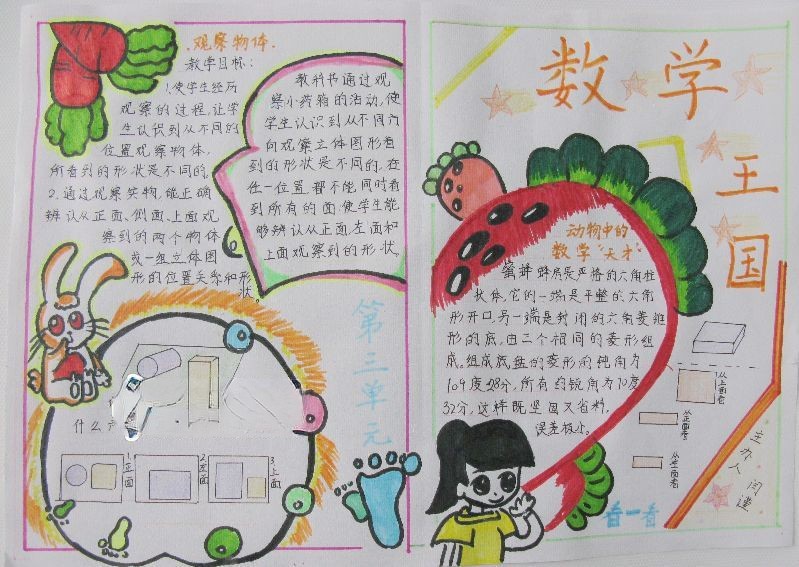 观察物体.
教学目标:
1.使学生经历
观察的过程,让学
生认识到从不同的
位置观察物体,
所看到的形状是不同的.
2.通过观察实物,能正确
辨认从正面、侧面、上面观
察到的两个物体
或一组立体图
形的位置关系和形
状。
教科书通过观
察小药箱的活动,使
学生认识到从不同方
向观察立体图形看
到的形状是不同的,在
任一位置都不能同时看
到所有的面.使学生能
够辨认从正面.左面和
上面观察到的形状.
第三单元
什么
1.正面
2.左面
3.上面
数学
王国
动物中的
数学"天才"
蜜蜂蜂房是严格的六角柱
状体,它的一端是平整的六角
形开口,另一端是封闭的六角菱锥
形的底,由三个相同的菱形组
成.组成底盘的菱形的钝角为
109度28分,所有的锐角为70度
32分,这样既坚固又省料.
误差极少。
从上面看
从正面看
从左面看
看一看
主办人